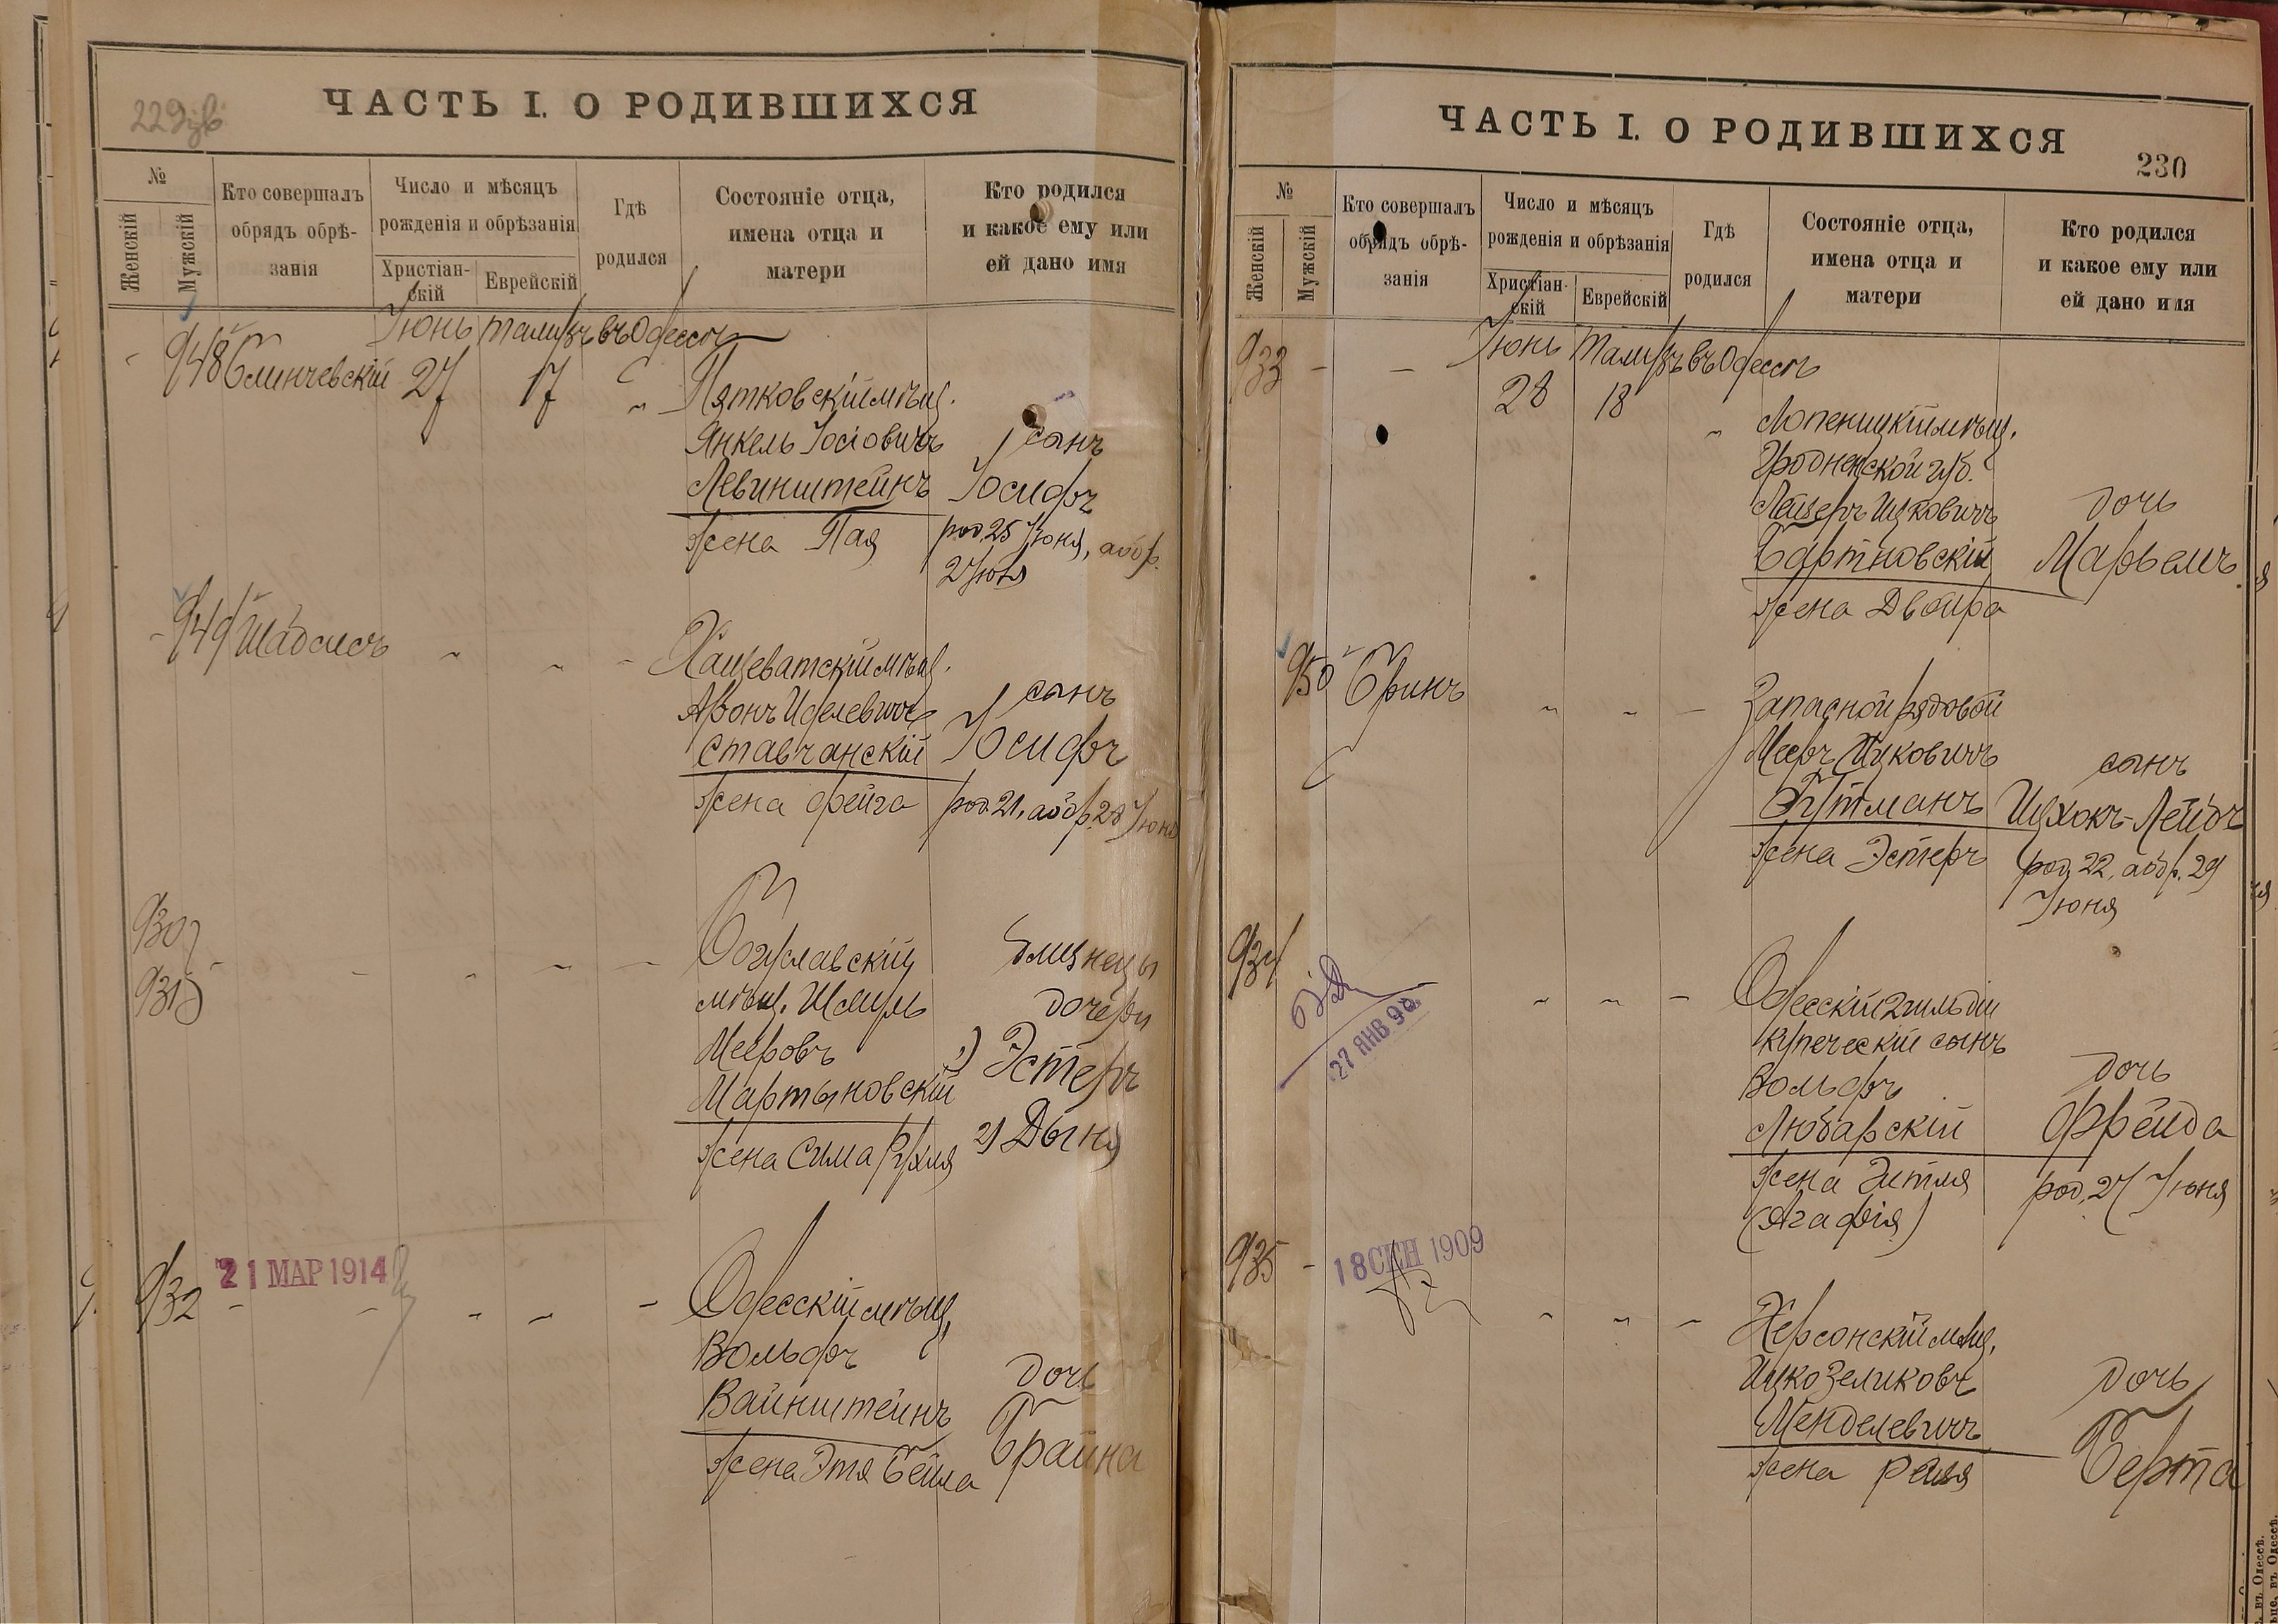 229об
ЧАСТЬ I. О РОДИВШИХСЯ
№
Женскій
Мужскій
Кто совершалъ
обрядъ обрѣ-
занія
Число и мѣсяцъ
рожденія и обрѣзанія
Христіан-
скій
Еврейскій
Гдѣ
родился
Состояніе отца,
имена отца и
матери
Кто родился
и какое ему или
ей дано имя
Іюнь Тамузъ въ Одессѣ
948 27 17
Пятковскій мѣщ.
Янкель Іосіовичъ сынъ
Левинштейнъ Іосифъ
жена Пая род. 25 Іюня, обр.
2 Іюля
949
Хащеватскій мѣщ.
Аронъ Иделевичъ сынъ
Ставчанскій Іосифъ
жена Фейга род. 21, обр. 28 Іюня
930
931
Богуславскій близнецы
мѣщ. Шмуль дочери
Мееровъ 1) Эстеръ
Мартыновскій
жена Сима Рухля 2) Дыня
21 МАР 1914
932
Одесскій мѣщ.
Вольфъ дочь
Вайнштейнъ Брайна
жена Этя Бейла
ЧАСТЬ I. О РОДИВШИХСЯ
230
№
Женскій
Мужскій
Кто совершалъ
обрядъ обрѣ-
занія
Число и мѣсяцъ
рожденія и обрѣзанія
Христіан-
скій
Еврейскій
Гдѣ
родился
Состояніе отца,
имена отца и
матери
Кто родился
и какое ему или
ей дано имя
933 - - Іюнь Тамузъ въ Одессѣ
28 18
Лопеницкій мѣщ.
Гродненской губ.
Лейзеръ Ицковичъ дочь
Бартновскій Марьемъ
жена Двойра
950 Гринъ
Запасной рядовой
Мееръ Ицковичъ сынъ
Гутманъ Ицхокъ-Лейбъ
жена Эстеръ род. 22, обр. 29
Іюня
934
27 ЯНВ 98
Одесскій 2 гильдіи
купеческій сынъ
Вольфъ дочь
Любарскій Фрейда
жена Этля род. 27 Іюня
(Агафія)
935 - 18 СЕН 1909
Херсонскій мѣщ.
Ицко Зеликовъ дочь
Менделевичъ Берта
жена Рейзя